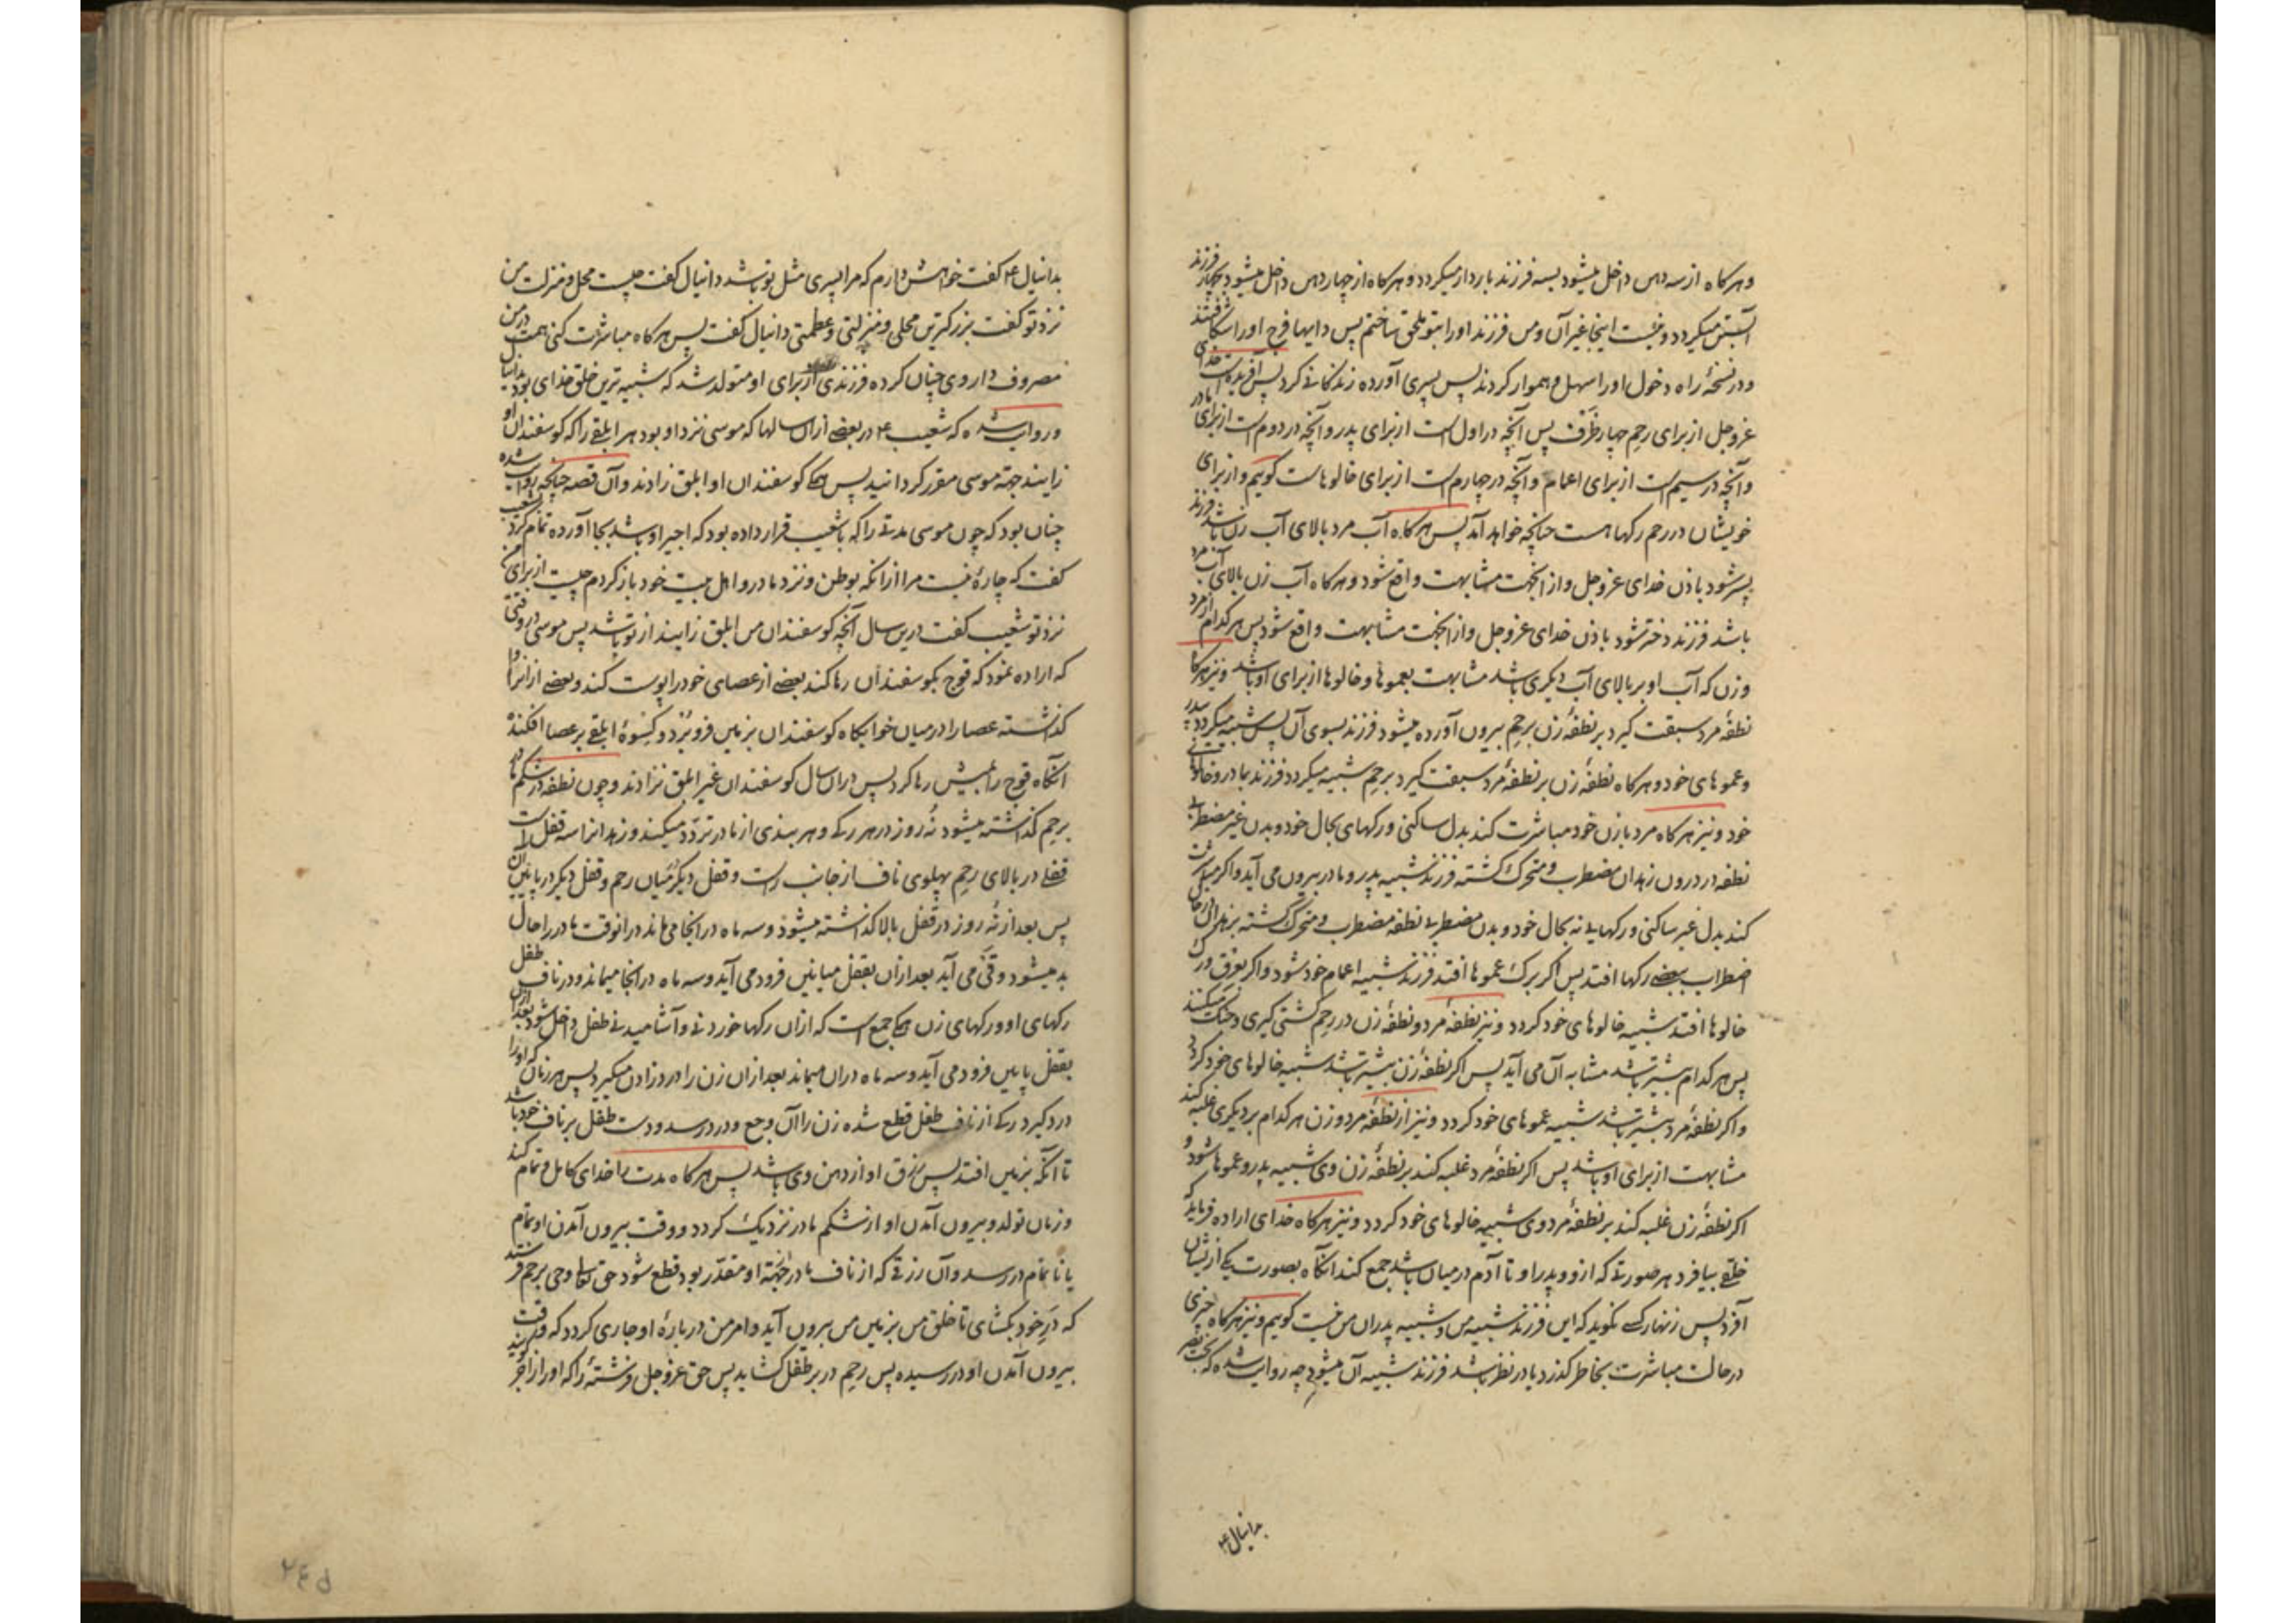 وهرکاه از سه دهن داخل میشود بسه فرزند باردار میکردد وهرکاه از چهار دهن داخل میشود بچهار فرزند
آبستن میکردد ونیست اینجا غیر آن ومن فرزند اورا بتو ملحق ساختم پس دایها فرج اورا شکافتند
ودر نسخۀ راه دخول اورا سهل وهموار کردند پس پسری آورده زندکانی کرد پس آفریده است خدای
عزوجل از برای رحم چهار ظرف پس آنچه در اول است از برای پدر وآنچه در دوم است از برای مادر
وآنچه در سیم است از برای اعمام وآنچه در چهارم است از برای خالوهاست کویم واز برای
خویشان در رحم رکها هست چنانچه خواهد آمد پس هرکاه آب مرد بالای آب زن باشد فرزند
پسر شود باذن خدای عزوجل واز انجهت مشابهت واقع شود وهرکاه آب زن بالای آب مرد
باشد فرزند دختر شود باذن خدای عزوجل واز انجهت مشابهت واقع شود پس هرکدام از مرد
وزن که آب او بر بالای آب دیکری باشد مشابهت بعموها وخالوها از برای او باشد ونیز هرکاه
نطفۀ مرد سبقت کیرد بر نطفۀ زن برحم بیرون آورده میشود فرزند بسوی آن پس شبیه میکردد بپدر
وعموهای خود وهرکاه نطفۀ زن بر نطفۀ مرد سبقت کیرد برحم شبیه میکردد فرزند بمادر وخالوهای
خود ونیز هرکاه مرد با زن خود مباشرت کند بدل ساکنی ورکهای بحال خود وبدن غیر مضطربی
نطفه در درون زهدان مضطرب ومتحرک کشته فرزند شبیه پدر ومادر بیرون می آید واکر مباشرت
کند بدل غیر ساکنی ورکهایی نه بحال خود وبدن مضطربی نطفه مضطرب ومتحرک کشته بزهدان در حال
اضطراب ببعضے رکها افتد پس اکر برک عموها افتد فرزند شبیه اعمام خود شود واکر بعرق ورک
خالوها افتد شبیه خالوهای خود کردد ونیز نطفۀ مرد ونطفۀ زن در رحم کشتی کیری وجنک میکنند
پس هرکدام بیشتر باشد مشابه آن می آید پس اکر نطفۀ زن بیشتر باشد شبیه خالوهای خود کردد
واکر نطفۀ مرد بیشتر باشد شبیه عموهای خود کردد ونیز از نطفۀ مرد وزن هرکدام بر دیکری غلبه کند
مشابهت از برای او باشد پس اکر نطفۀ مرد غلبه کند بر نطفۀ زن وی شبیه پدر وعموها شود و
اکر نطفۀ زن غلبه کند بر نطفۀ مرد وی شبیه خالوهای خود کردد ونیز هرکاه خدای اراده فرماید که
خلقی بیافرد هر صورتی که از او وپدر او تا آدم در میان باشد جمع کند انکاه بصورت یکی از ایشان
آفرد پس زنهار کسے نکوید که این فرزند شبیه من وشبیه پدران من نیست کویم ونیز هرکاه چیزی
در حالت مباشرت بخاطر کذرد یا در نظر باشد فرزند شبیه آن میشود چه روایت شده که بخت نصر
بدانیال ع
بدانیال ع کفت خواهش دارم که مرا پسری مثل تو باشد دانیال کفت چیست محل ومنزلت من
نزد تو کفت بزرکترین محلی ومنزلتی وعظمتی دانیال کفت پس هرکاه مباشرت کنی همت در من
مصروف دار وی چنان کرده فرزندی از برای او متولد شد که شبیه ترین خلق خدای بود بدانیال
وروایت شده که شعیب ع در بعضے از ان سالها که موسی نزد او بود هر ابلقے را که کوسفندان او
زایند جهة موسی مقرر کردانید پس همکے کوسفندان او ابلق زادند وآن قصه چنانچه روایت شده
چنان بود که چون موسی مدتے را که با شعیب قرار داده بود که اجیر او باشد بجا آورده تمام کرد بشعیب
کفت که چارۀ نیست مرا از انکه بوطن ونزد مادر واهل بیت خود باز کردم چیست از برای من
نزد تو شعیب کفت درین سال آنچه کوسفندان من ابلق زایند از تو باشد پس موسی در وقتی
که اراده نمود که قوچ بکوسفندان رها کند بعضے از عصای خود را پوست کند وبعضے از انرا وا
کذاشته عصا را در میان خوابکاه کوسفندان بزمین فرو برد وکسوۀ ابلقے بر عصا افکند
انکاه قوچ را بمیش رها کرد پس در ان سال کوسفندان غیر ابلق نزادند وچون نطفه در شکم مادر
برحم کذاشته میشود نه روز در هر رکے وهر بندی از مادر تردد میکند وزهدانرا سه قفل است
قفلے در بالای رحم پهلوی ناف از جانب راست وقفل دیکر در میان رحم وقفل دیکر در پایین آن
پس بعد از نه روز در قفل بالا کذاشته میشود وسه ماه در انجا می ماند در انوقت مادر را حال
بد میشود وقی می آید بعد از ان بقفل میانین فرود می آید وسه ماه در انجا میماند ودر ناف طفل
رکهای او ورکهای زن همکے جمع است که از ان رکها خوردنی وآشامیدنی طفل داخل شود بعد از ان
بقفل پایین فرود می آید وسه ماه در ان میماند بعد از ان زن را درد زادن میکیرد پس هر زنان که او را
درد کیرد رکے از ناف طفل قطع شده زن را آن وجع ودرد رسد ودست طفل بر ناف خود باشد
تا آنکه بزمین افتد پس رزق او از دهن وی باشد پس هرکاه مدت را خدای کامل وتمام کند
وزمان تولد وبیرون آمدن او از شکم مادر نزدیک کردد ووقت بیرون آمدن او تمام
یا ناتمام در رسد وآن رزقی که از ناف مادر جهتة او مقدر بود قطع شود حق تعالی وحی برحم فرستد
که در خود بکشای تا خلق من بزمین من بیرون آید وامر من دربارۀ او جاری کردد که وقت
بیرون آمدن او در رسیده پس رحم در بر طفل کشاید پس حق عزوجل فرشتۀ را که او را زاجر کویند